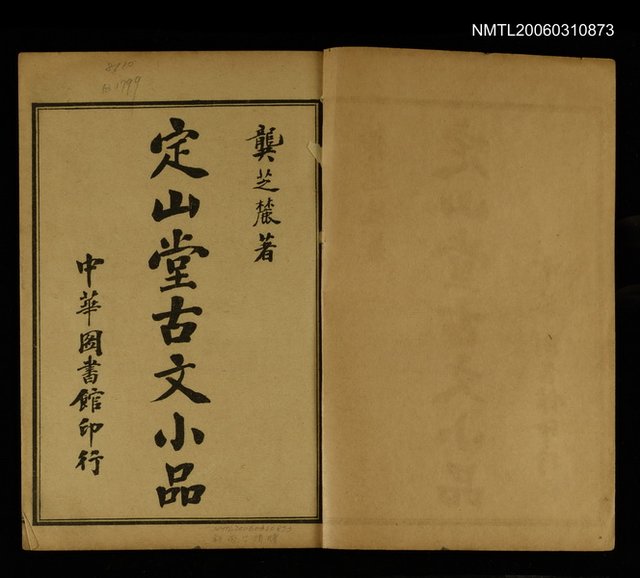 NMTL20060310873
龔芝麓著
定山堂古文小品
中華圖書館印行
NMTL20060310873